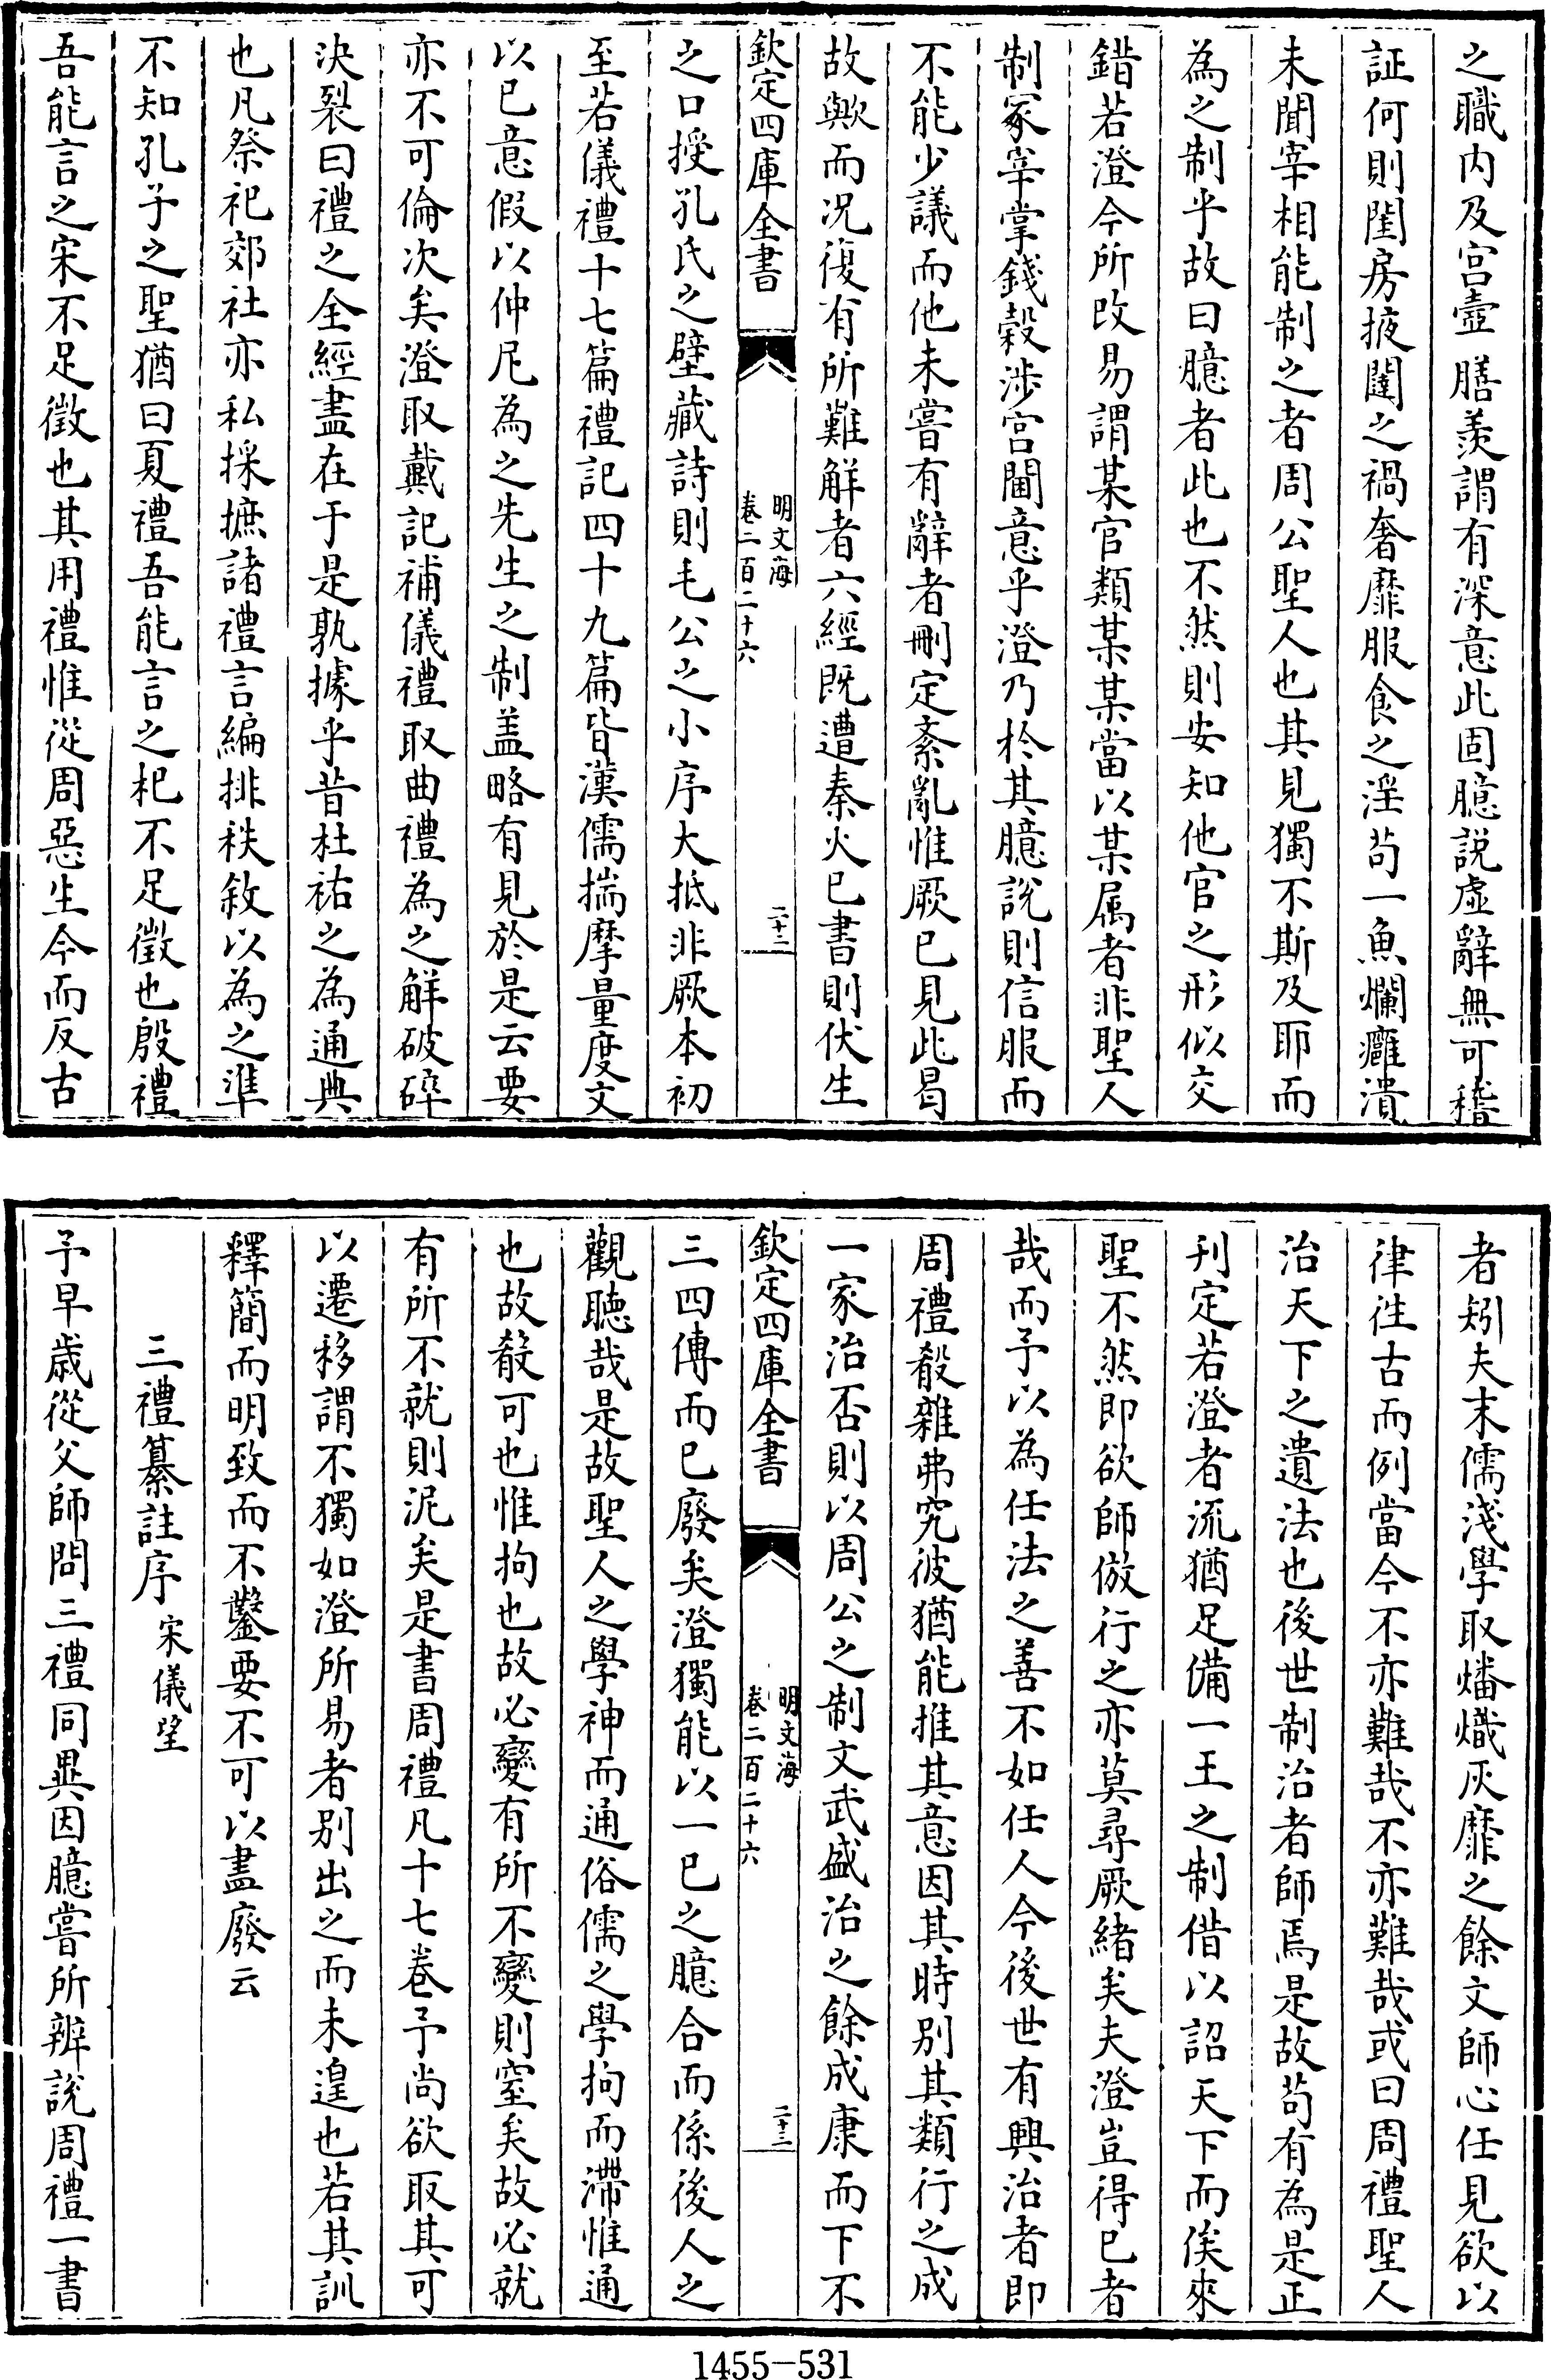 之職内及宫壼膳羨謂有深意此固臆説虛辭無可稽
証何則閨房掖闥之禍奢靡服食之淫茍一魚爛癰潰
未聞宰相能制之者周公聖人也其見獨不斯及耶而
為之制乎故曰臆者此也不然則安知他官之形似交
錯若澄今所改易謂某官類某某當以某属者非聖人
制冢宰掌錢穀涉宫閫意乎澄乃於其臆說則信服而
不能少議而他未嘗有辭者刪定紊亂惟厥已見此曷
故歟而况復有所難解者六經既遭秦火已書則伏生
欽定四庫全書
明文海
卷二百二十六
二十二
之口授孔氏之壁藏詩則毛公之小序大抵非厥本初
至若儀禮十七篇禮記四十九篇皆漢儒揣摩量度文
以已意假以仲尼為之先生之制盖略有見於是云要
亦不可倫次矣澄取戴記補儀禮取曲禮為之解破碎
決裂曰禮之全經盡在于是孰據乎昔杜祐之為通典
也凡祭祀郊社亦私採摭諸禮言編排秩敘以為之準
不知孔子之聖猶曰夏禮吾能言之杞不足徵也殷禮
吾能言之宋不足徵也其用禮惟從周惡生今而反古
者矧夫末儒淺學取燔熾灰靡之餘文師心任見欲以
律往古而例當今不亦難哉不亦難哉或曰周禮聖人
治天下之遺法也後世制治者師焉是故茍有為是正
刋定若澄者流猶足備一王之制借以詔天下而俟來
聖不然即欲師倣行之亦莫尋厥緒矣夫澄豈得已者
哉而予以為任法之善不如任人今後世有興治者即
周禮殽雜弗究彼猶能推其意因其時別其類行之成
一家治否則以周公之制文武盛治之餘成康而下不
欽定四庫全書
明文海
卷二百二十六
二十三
三四傳而已廢矣澄獨能以一已之臆合而係後人之
觀聽哉是故聖人之學神而通俗儒之學拘而滯惟通
也故殽可也惟拘也故必變有所不變則窒矣故必就
有所不就則泥矣是書周禮凡十七卷予尚欲取其可
以遷移謂不獨如澄所易者别出之而未遑也若其訓
釋簡而明致而不鑿要不可以盡廢云
三禮纂註序 宋儀望
予早歲從父師問三禮同異因臆嘗所辨說周禮一書
1455-531